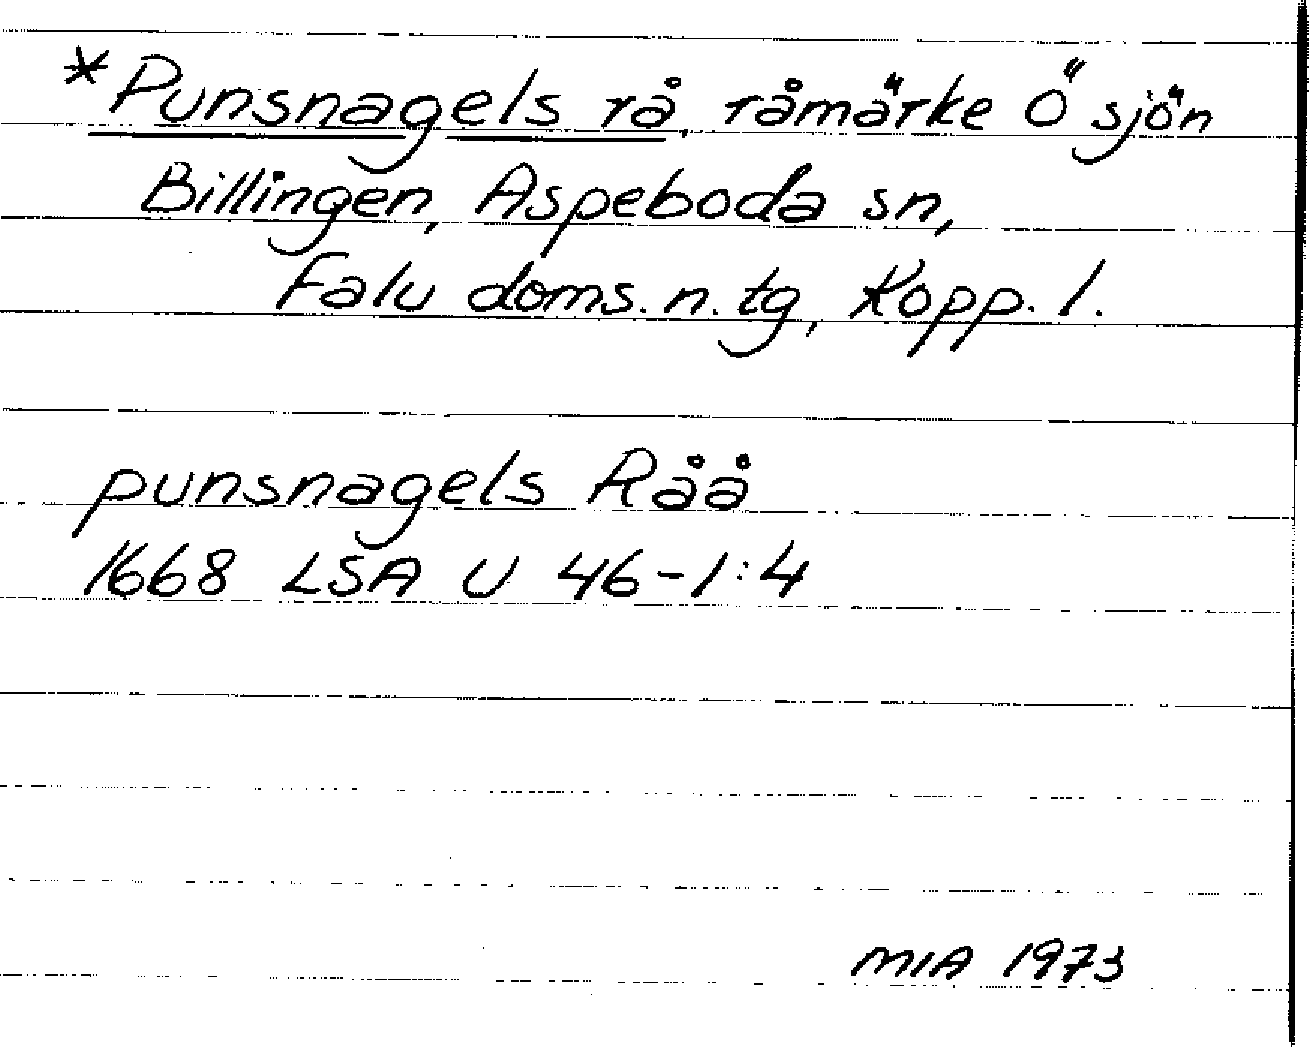 *Punsnagels rå, råmärke Ö sjön
Billingen, Aspeboda sn,
Falu doms. n. tg, Kopp. l.
punsnagels Råå
1668 LSA U 46-1:4
MIA 1973